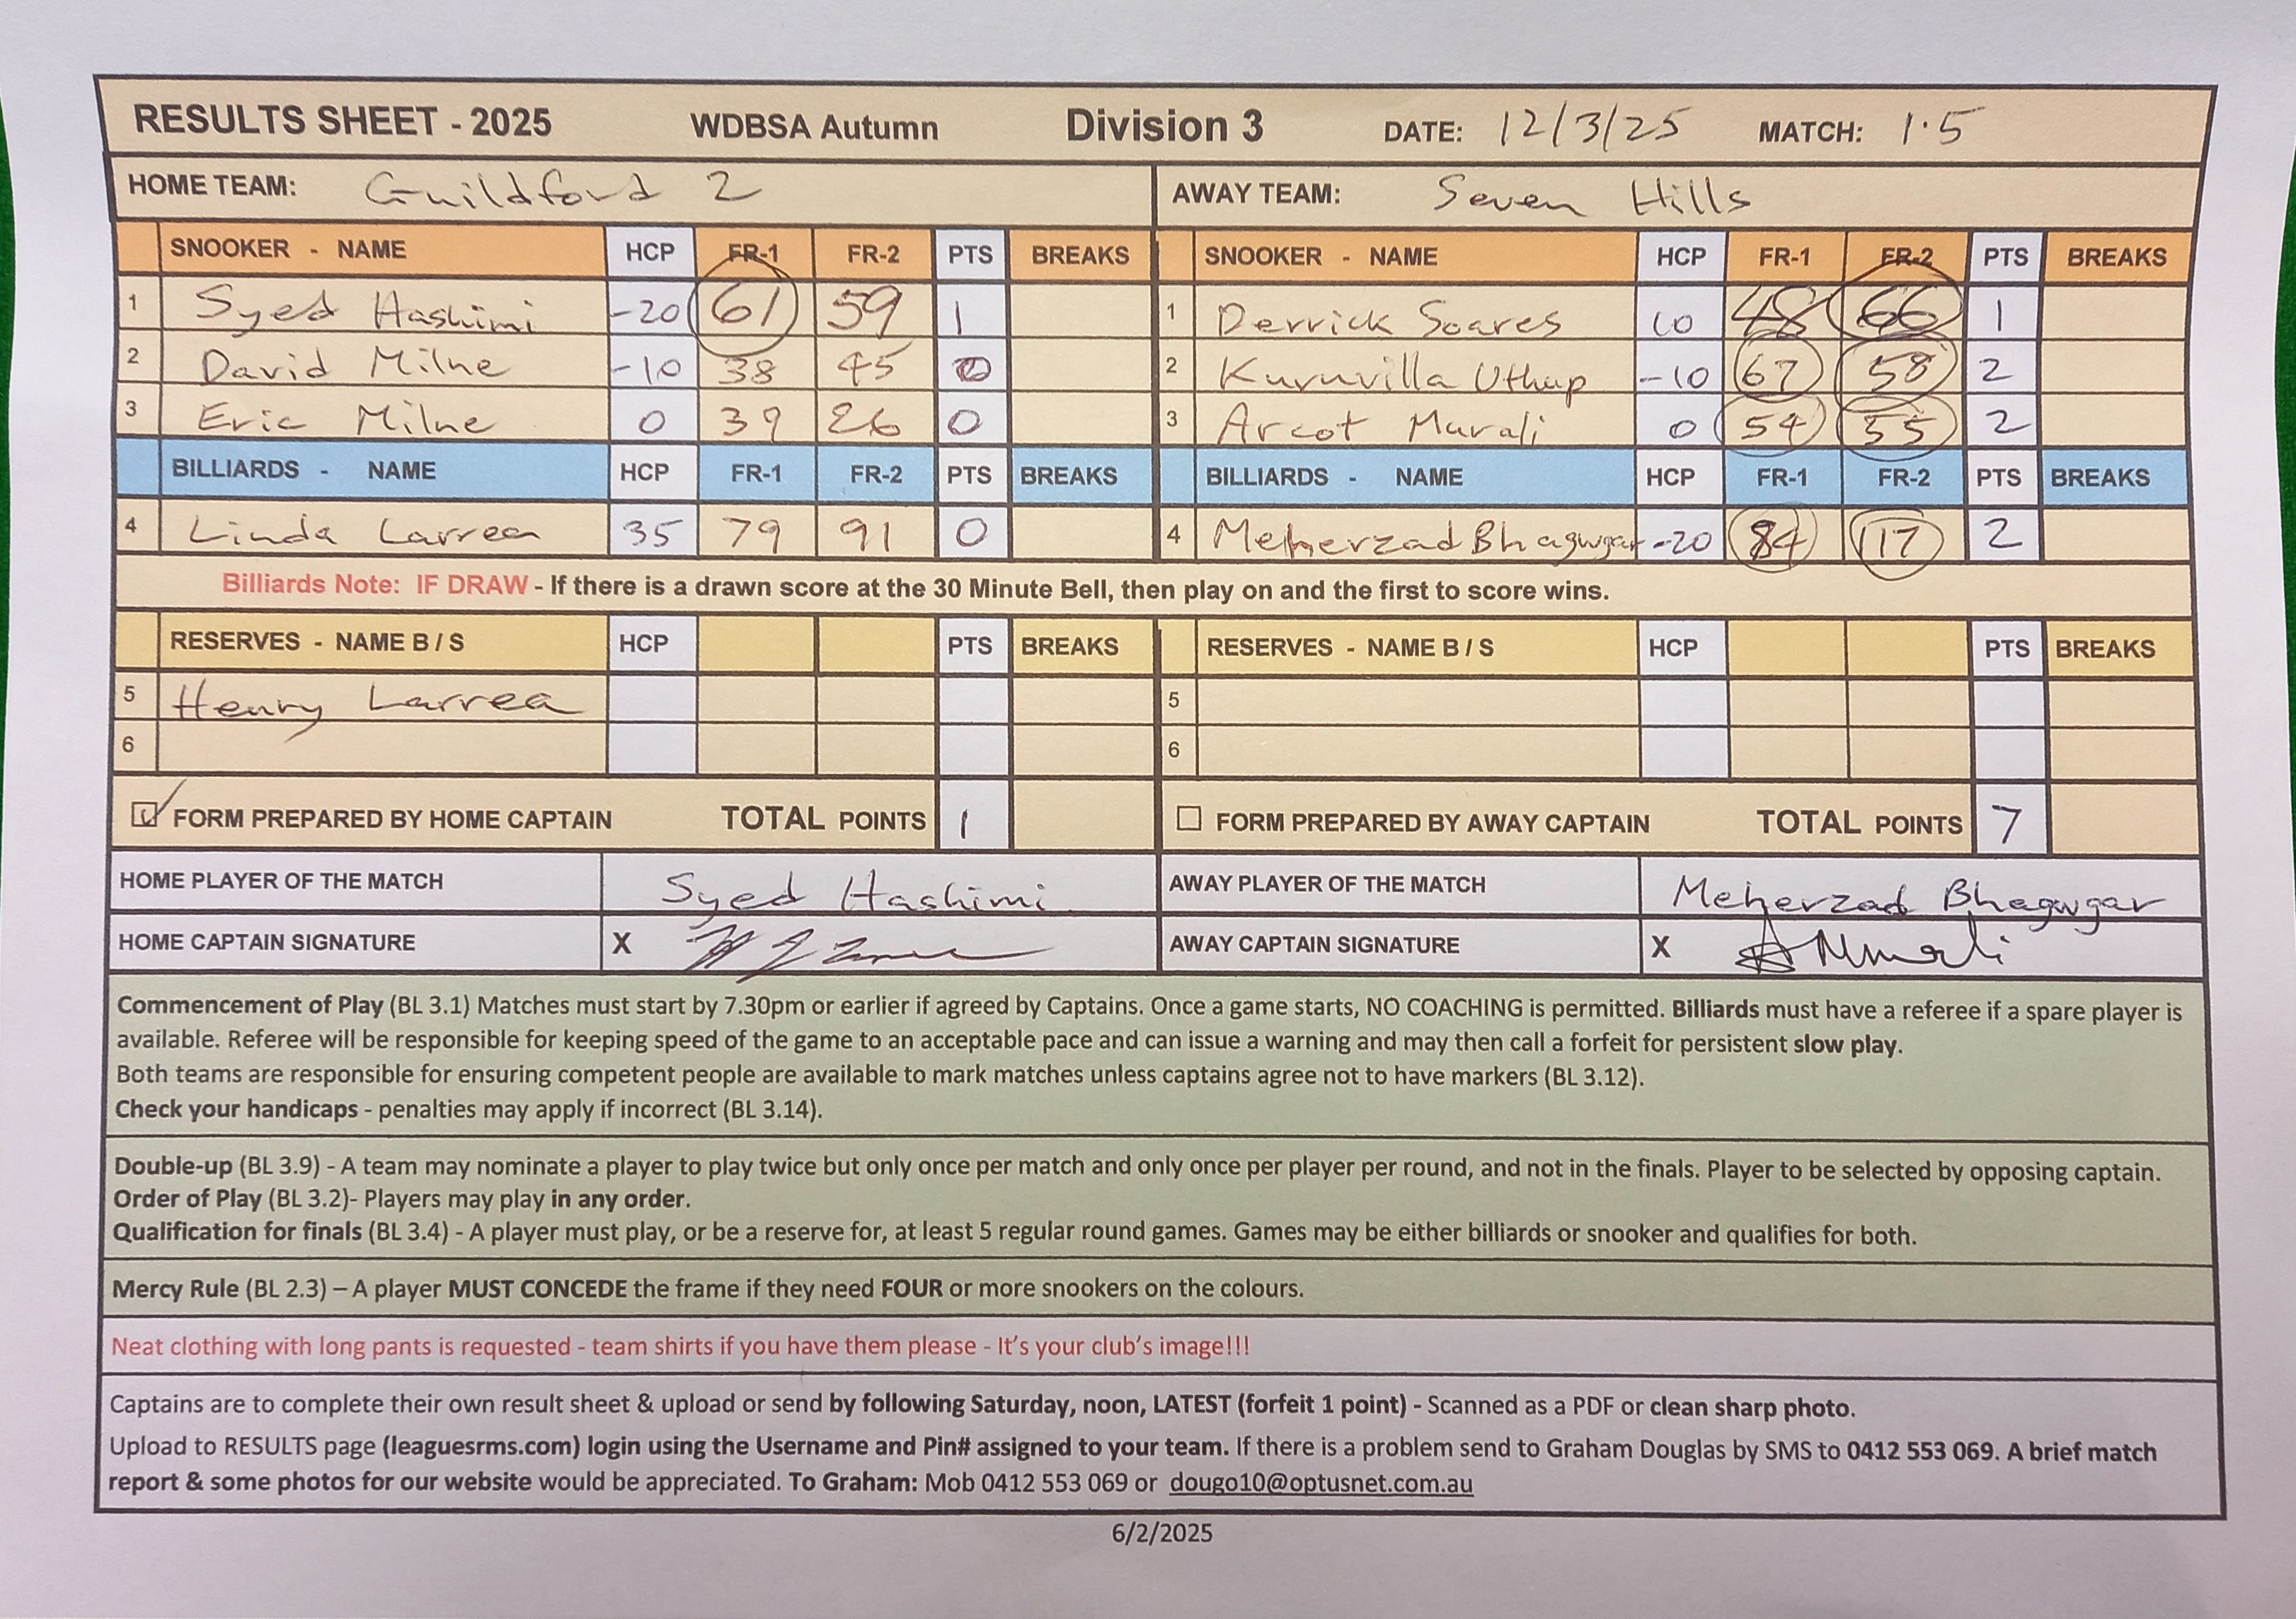 RESULTS SHEET - 2025 WDBSA Autumn Division 3 DATE: 12/3/25 MATCH: 1.5
HOME TEAM: Guildford 2 AWAY TEAM: Seven Hills
SNOOKER - NAME HCP FR-1 FR-2 PTS BREAKS SNOOKER - NAME HCP FR-1 FR-2 PTS BREAKS
1 Syed Hashimi -20 61 59 1 1 Derrick Soares 10 48 66 1
2 David Milne -10 38 45 0 2 Kuruvilla Uthup -10 67 58 2
3 Eric Milne 0 39 26 0 3 Arcot Murali 0 54 55 2
BILLIARDS - NAME HCP FR-1 FR-2 PTS BREAKS BILLIARDS - NAME HCP FR-1 FR-2 PTS BREAKS
4 Linda Larrea 35 79 91 0 4 Meherzad Bhagwgar -20 84 117 2
Billiards Note: IF DRAW - If there is a drawn score at the 30 Minute Bell, then play on and the first to score wins.
RESERVES - NAME B / S HCP PTS BREAKS RESERVES - NAME B / S HCP PTS BREAKS
5 Henry Larrea 5
6 6
FORM PREPARED BY HOME CAPTAIN TOTAL POINTS 1 FORM PREPARED BY AWAY CAPTAIN TOTAL POINTS 7
HOME PLAYER OF THE MATCH Syed Hashimi AWAY PLAYER OF THE MATCH Meherzad Bhagwgar
HOME CAPTAIN SIGNATURE X AWAY CAPTAIN SIGNATURE X
Commencement of Play (BL 3.1) Matches must start by 7.30pm or earlier if agreed by Captains. Once a game starts, NO COACHING is permitted. Billiards must have a referee if a spare player is
available. Referee will be responsible for keeping speed of the game to an acceptable pace and can issue a warning and may then call a forfeit for persistent slow play.
Both teams are responsible for ensuring competent people are available to mark matches unless captains agree not to have markers (BL 3.12).
Check your handicaps - penalties may apply if incorrect (BL 3.14).
Double-up (BL 3.9) - A team may nominate a player to play twice but only once per match and only once per player per round, and not in the finals. Player to be selected by opposing captain.
Order of Play (BL 3.2)- Players may play in any order.
Qualification for finals (BL 3.4) - A player must play, or be a reserve for, at least 5 regular round games. Games may be either billiards or snooker and qualifies for both.
Mercy Rule (BL 2.3) – A player MUST CONCEDE the frame if they need FOUR or more snookers on the colours.
Neat clothing with long pants is requested - team shirts if you have them please - It's your club's image!!!
Captains are to complete their own result sheet & upload or send by following Saturday, noon, LATEST (forfeit 1 point) - Scanned as a PDF or clean sharp photo.
Upload to RESULTS page (leaguesrms.com) login using the Username and Pin# assigned to your team. If there is a problem send to Graham Douglas by SMS to 0412 553 069. A brief match
report & some photos for our website would be appreciated. To Graham: Mob 0412 553 069 or dougo10@optusnet.com.au
6/2/2025